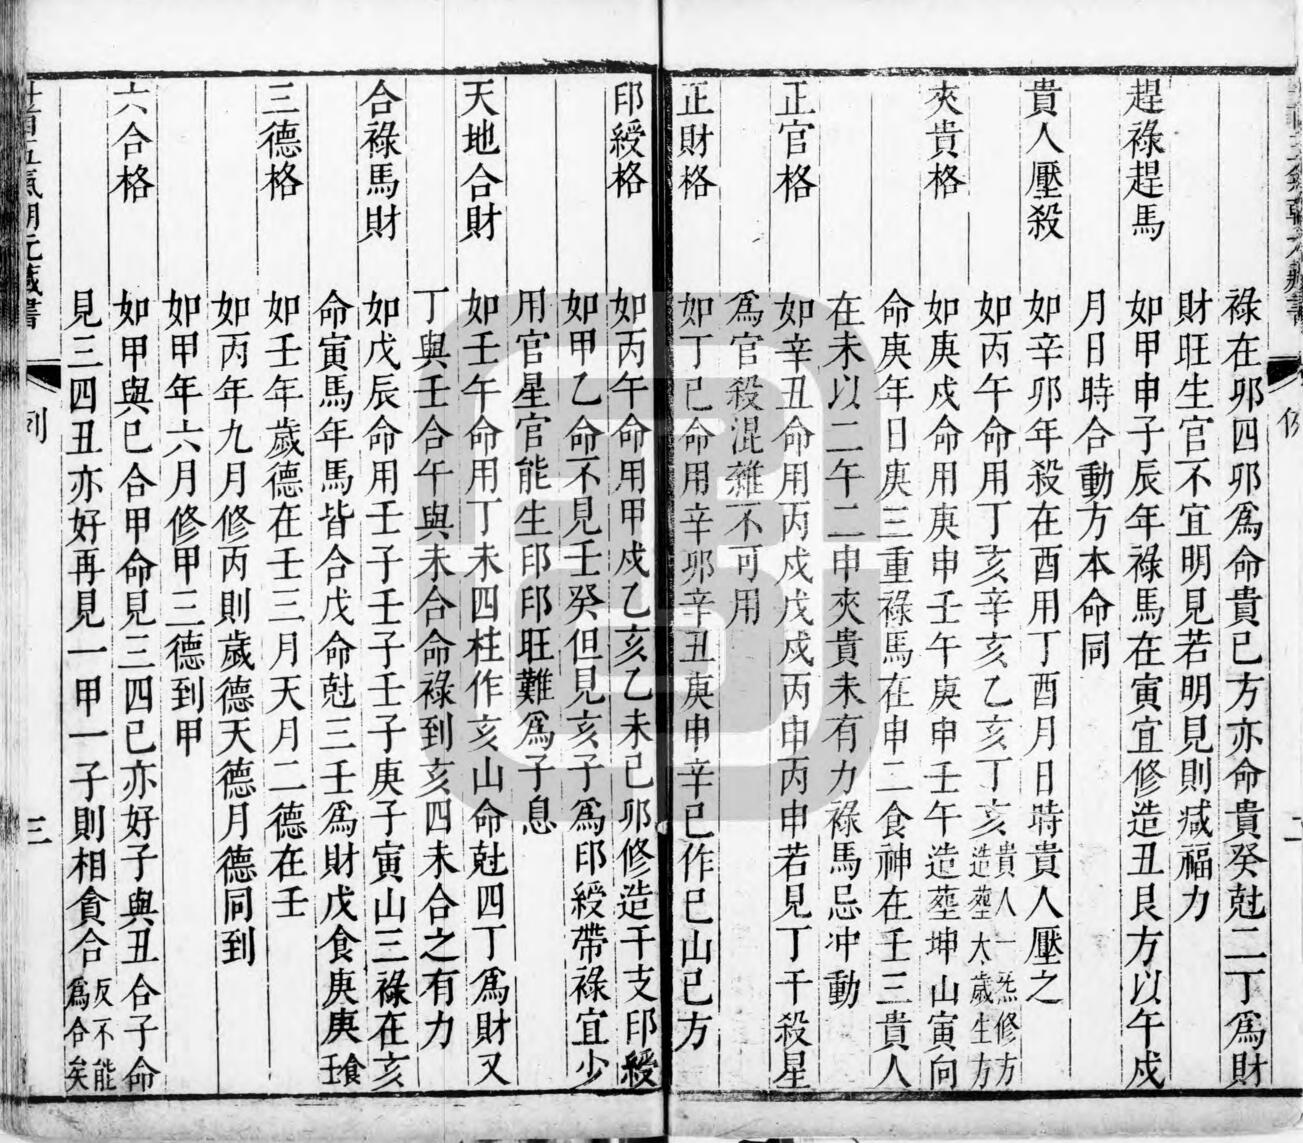 祿在卯四卯爲命貴巳方亦命貴癸尅二丁爲財
財旺生官不宜明見若明見則減福力
趕祿趕馬 如甲申子辰年祿馬在寅宜修造丑艮方以午戍
月日時合動方本命同
貴人壓殺 如辛卯年殺在酉用丁酉月日時貴人壓之
如丙午命用丁亥辛亥乙亥丁亥貴人一炁修方造塟太歲生方
夾貴格 如庚戍命用庚申壬午庚申壬午造塟坤山寅向
命庚年日庚三重祿馬在申二食神在壬三貴人
在未以二午二申夾貴未有力祿馬忌冲動
正官格 如辛丑命用丙戍戊戍丙申丙申若見丁干殺星
爲官殺混雜不可用
正財格 如丁巳命用辛卯辛丑庚申辛巳作巳山巳方
印綬格 如丙午命用甲戍乙亥乙未己卯修造干支印綬
如甲乙命不見壬癸但見亥子爲印綬帶祿宜少
用官星官能生印印旺難爲子息
天地合財 如壬午命用丁未四柱作亥山命尅四丁爲財又
丁與壬合午與未合命祿到亥四未合之有力
合祿馬財 如戊辰命用壬子壬子壬子庚子寅山三祿在亥
命寅馬年馬皆合戊命尅三壬爲財戊食庚庚食壬
三德格 如壬年歲德在壬三月天月二德在壬
如丙年九月修丙則歲德天德月德同到
如甲年六月修甲三德到甲
六合格 如甲與己合甲命見三四己亦好子與丑合子命
見三四丑亦好再見一甲一子則相貪合反不能爲合矣
三